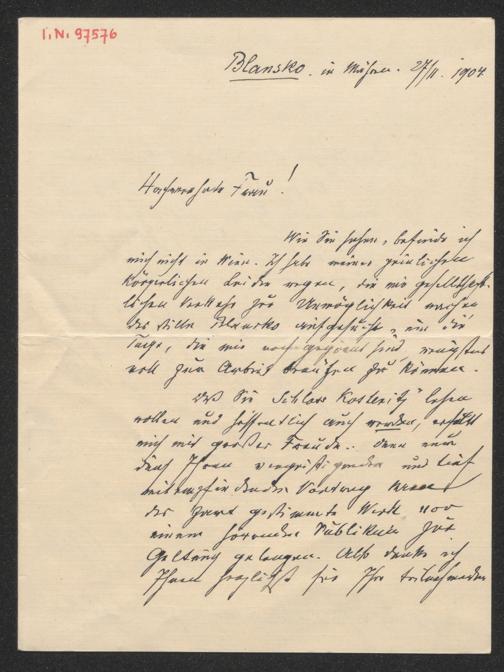 I.N. 97576
Blansko in Mähren. 27/II. 1904
Hochverehrte Frau!
Wie Sie sehen, befinde ich
mich nicht in Wien. Ich habe meiner peinlichen
körperlichen Leiden wegen, die mir gesellschaft-
lichen Verkehr zur Unmöglichkeit machen
das stille Blansko aufgesucht, um die
Tage, die mir noch gegönnt sind, wenigstens
voll zur Arbeit brauchen zu können.
Daß Sie "Schloss Kostenitz" lesen
wollen und hoffentlich auch werden, erfüllt
mich mit großer Freude. Denn nur
durch Ihren und tief
mitempfindenden Vortrag kann
das zart gestimmte Werk vor
einem hörenden Publikum zur
Geltung gelangen. Also danke ich
Ihnen herzlichst für Ihr teilnehmendes